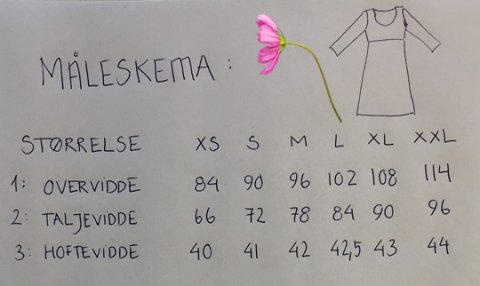 MÅLESKEMA :
STØRRELSE XS S M L XL XXL
1: OVERVIDDE 84 90 96 102 108 114
2: TALJEVIDDE 66 72 78 84 90 96
3: HOFTEVIDDE 40 41 42 42,5 43 44